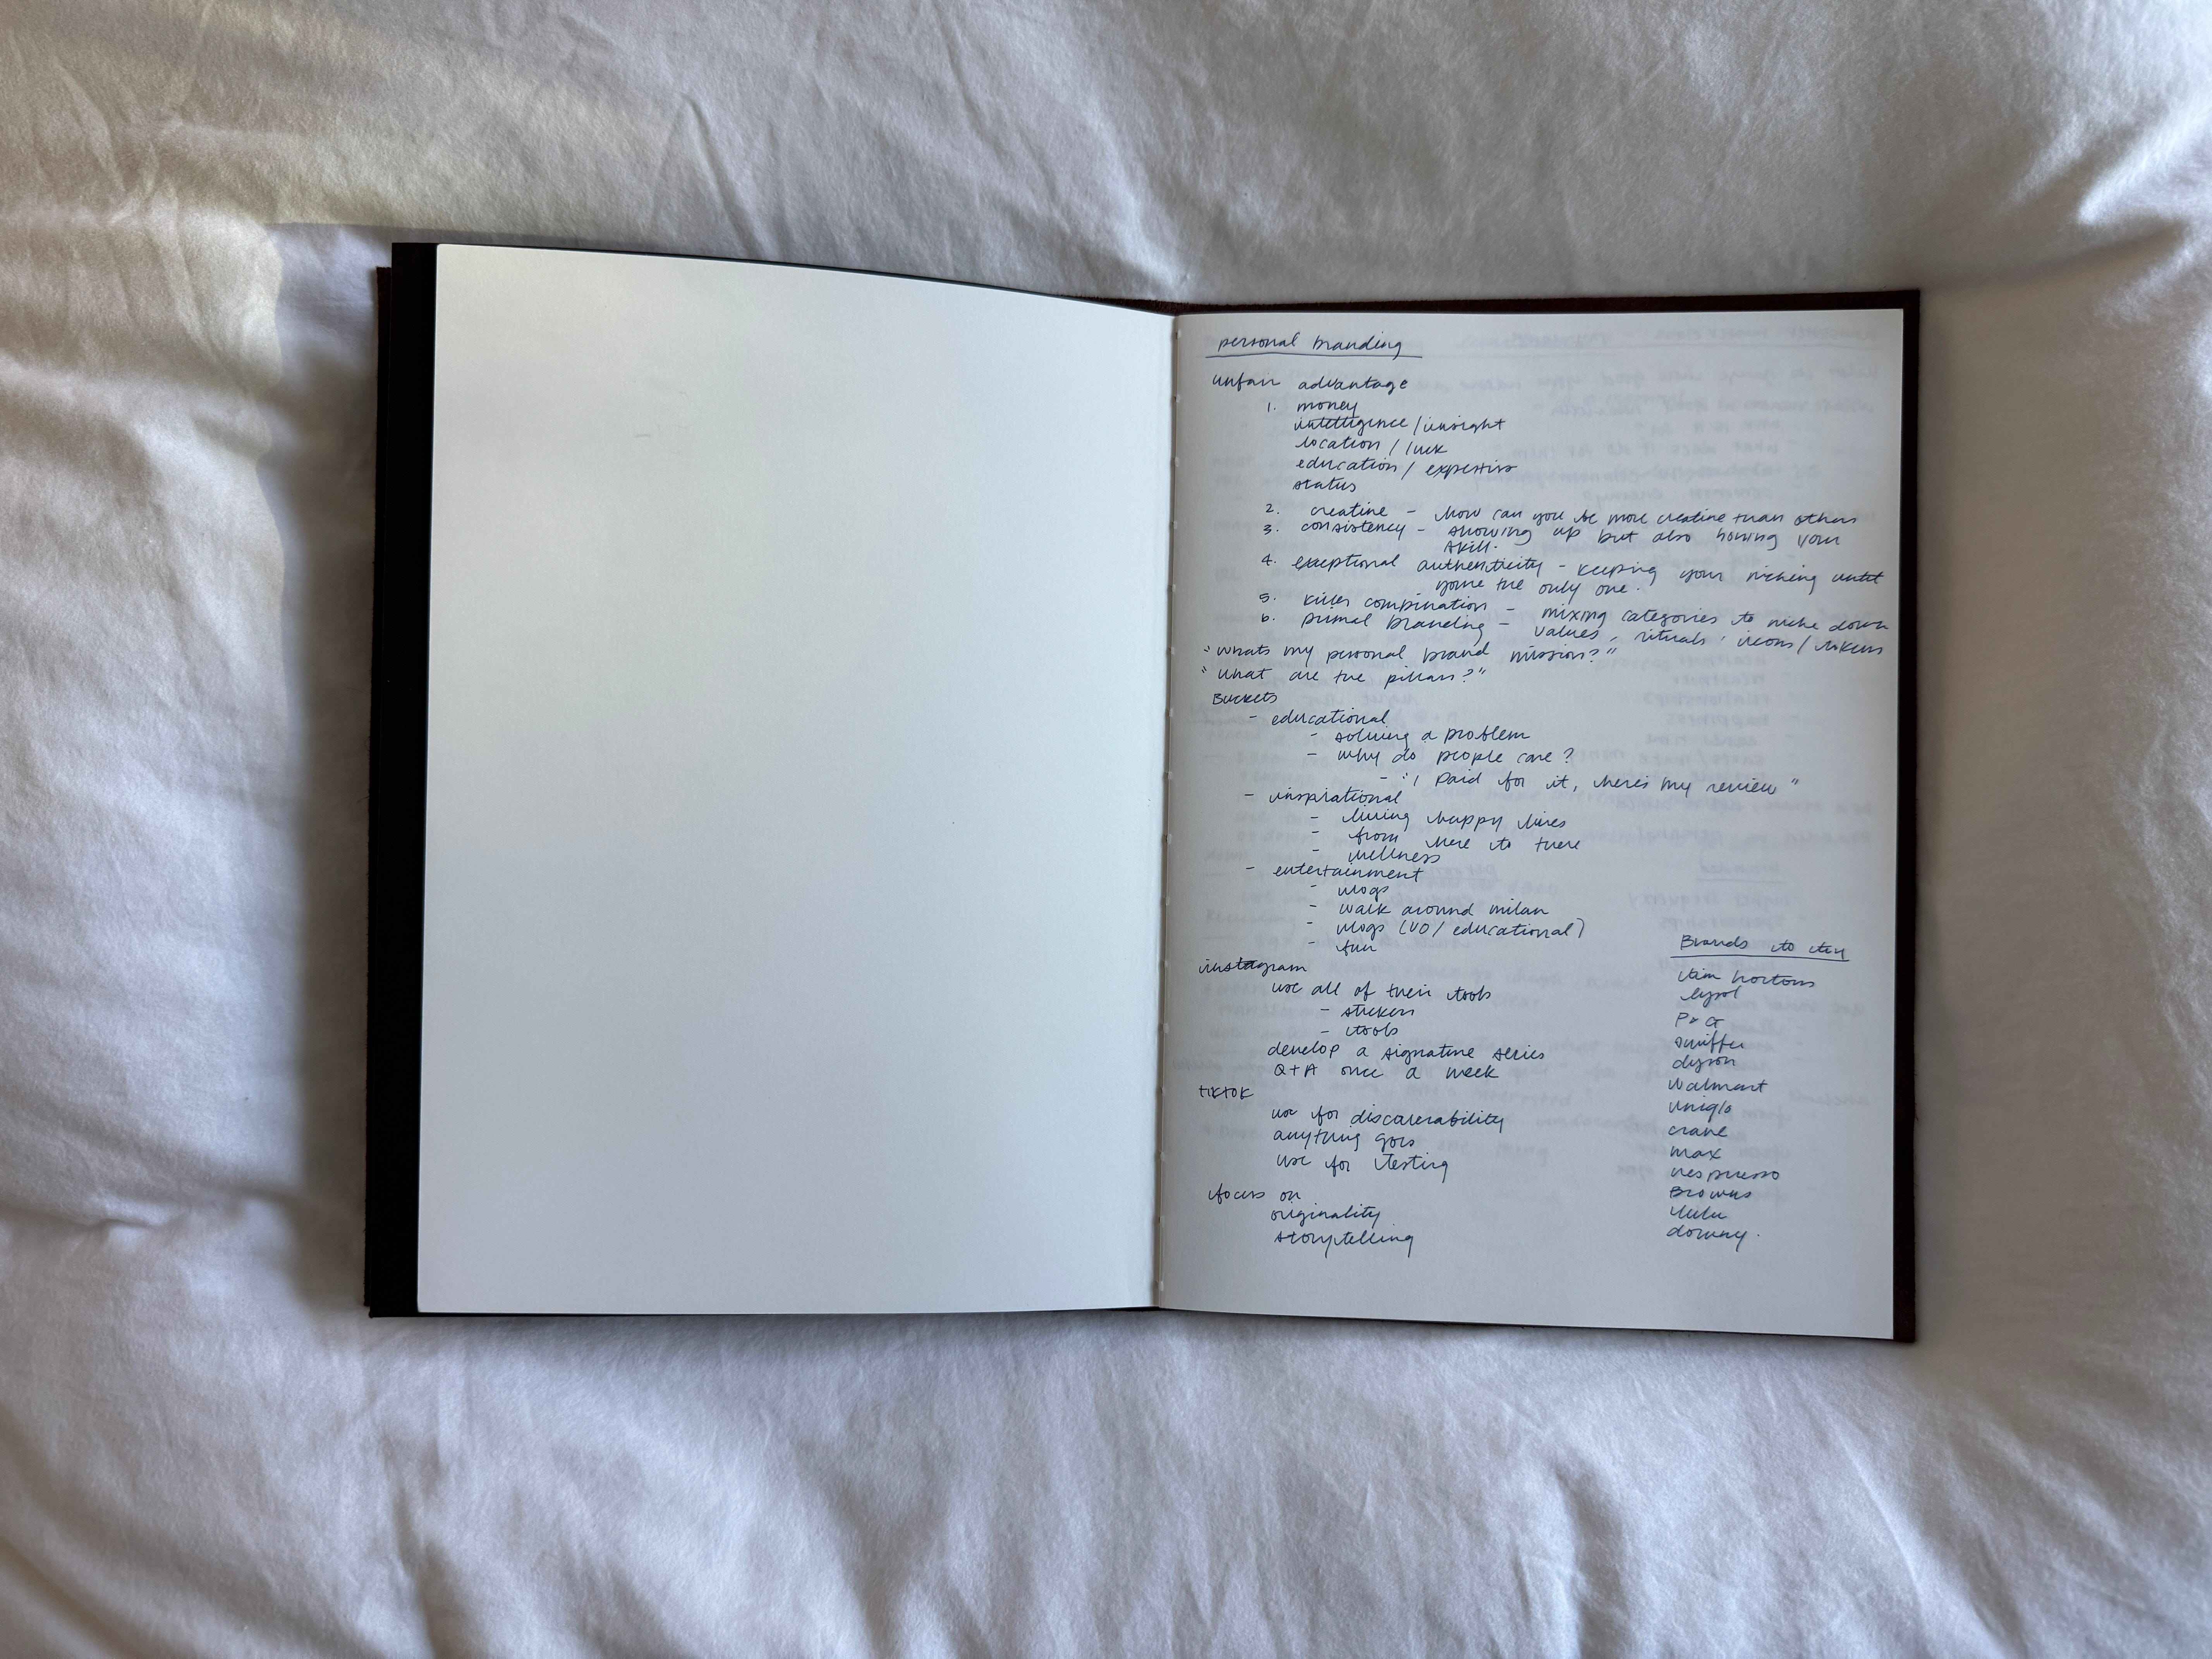 personal branding
unfair advantage
1. money
intelligence / insight
location / luck
education / expertise
status
2. creative - how can you be more creative than others
3. consistency - showing up but also honing your
skill.
4. exceptional authenticity - keeping your niching until
you're the only one.
5. killer combination - mixing categories to niche down
6. primal branding - values, rituals, icons /
"whats my personal brand mission?"
"what are the pillars?"
Buckets
- educational
- solving a problem
- why do people care?
- "I paid for it, here's my review"
- inspirational
- living happy lives
- from here to there
- wellness
- entertainment
- vlogs
- walk around milan
- vlogs (VO / educational)
- fun
instagram
use all of their tools
- stickers
- tools
develop a signature series
Q+A once a week
tiktok
use for discoverability
anything goes
use for testing
focus on
originality
storytelling
Brands to
tim hortons
lysol
P+G
swiffer
dyson
walmart
uniqlo
crave
max
nespresso
Browns
lulu
downy.